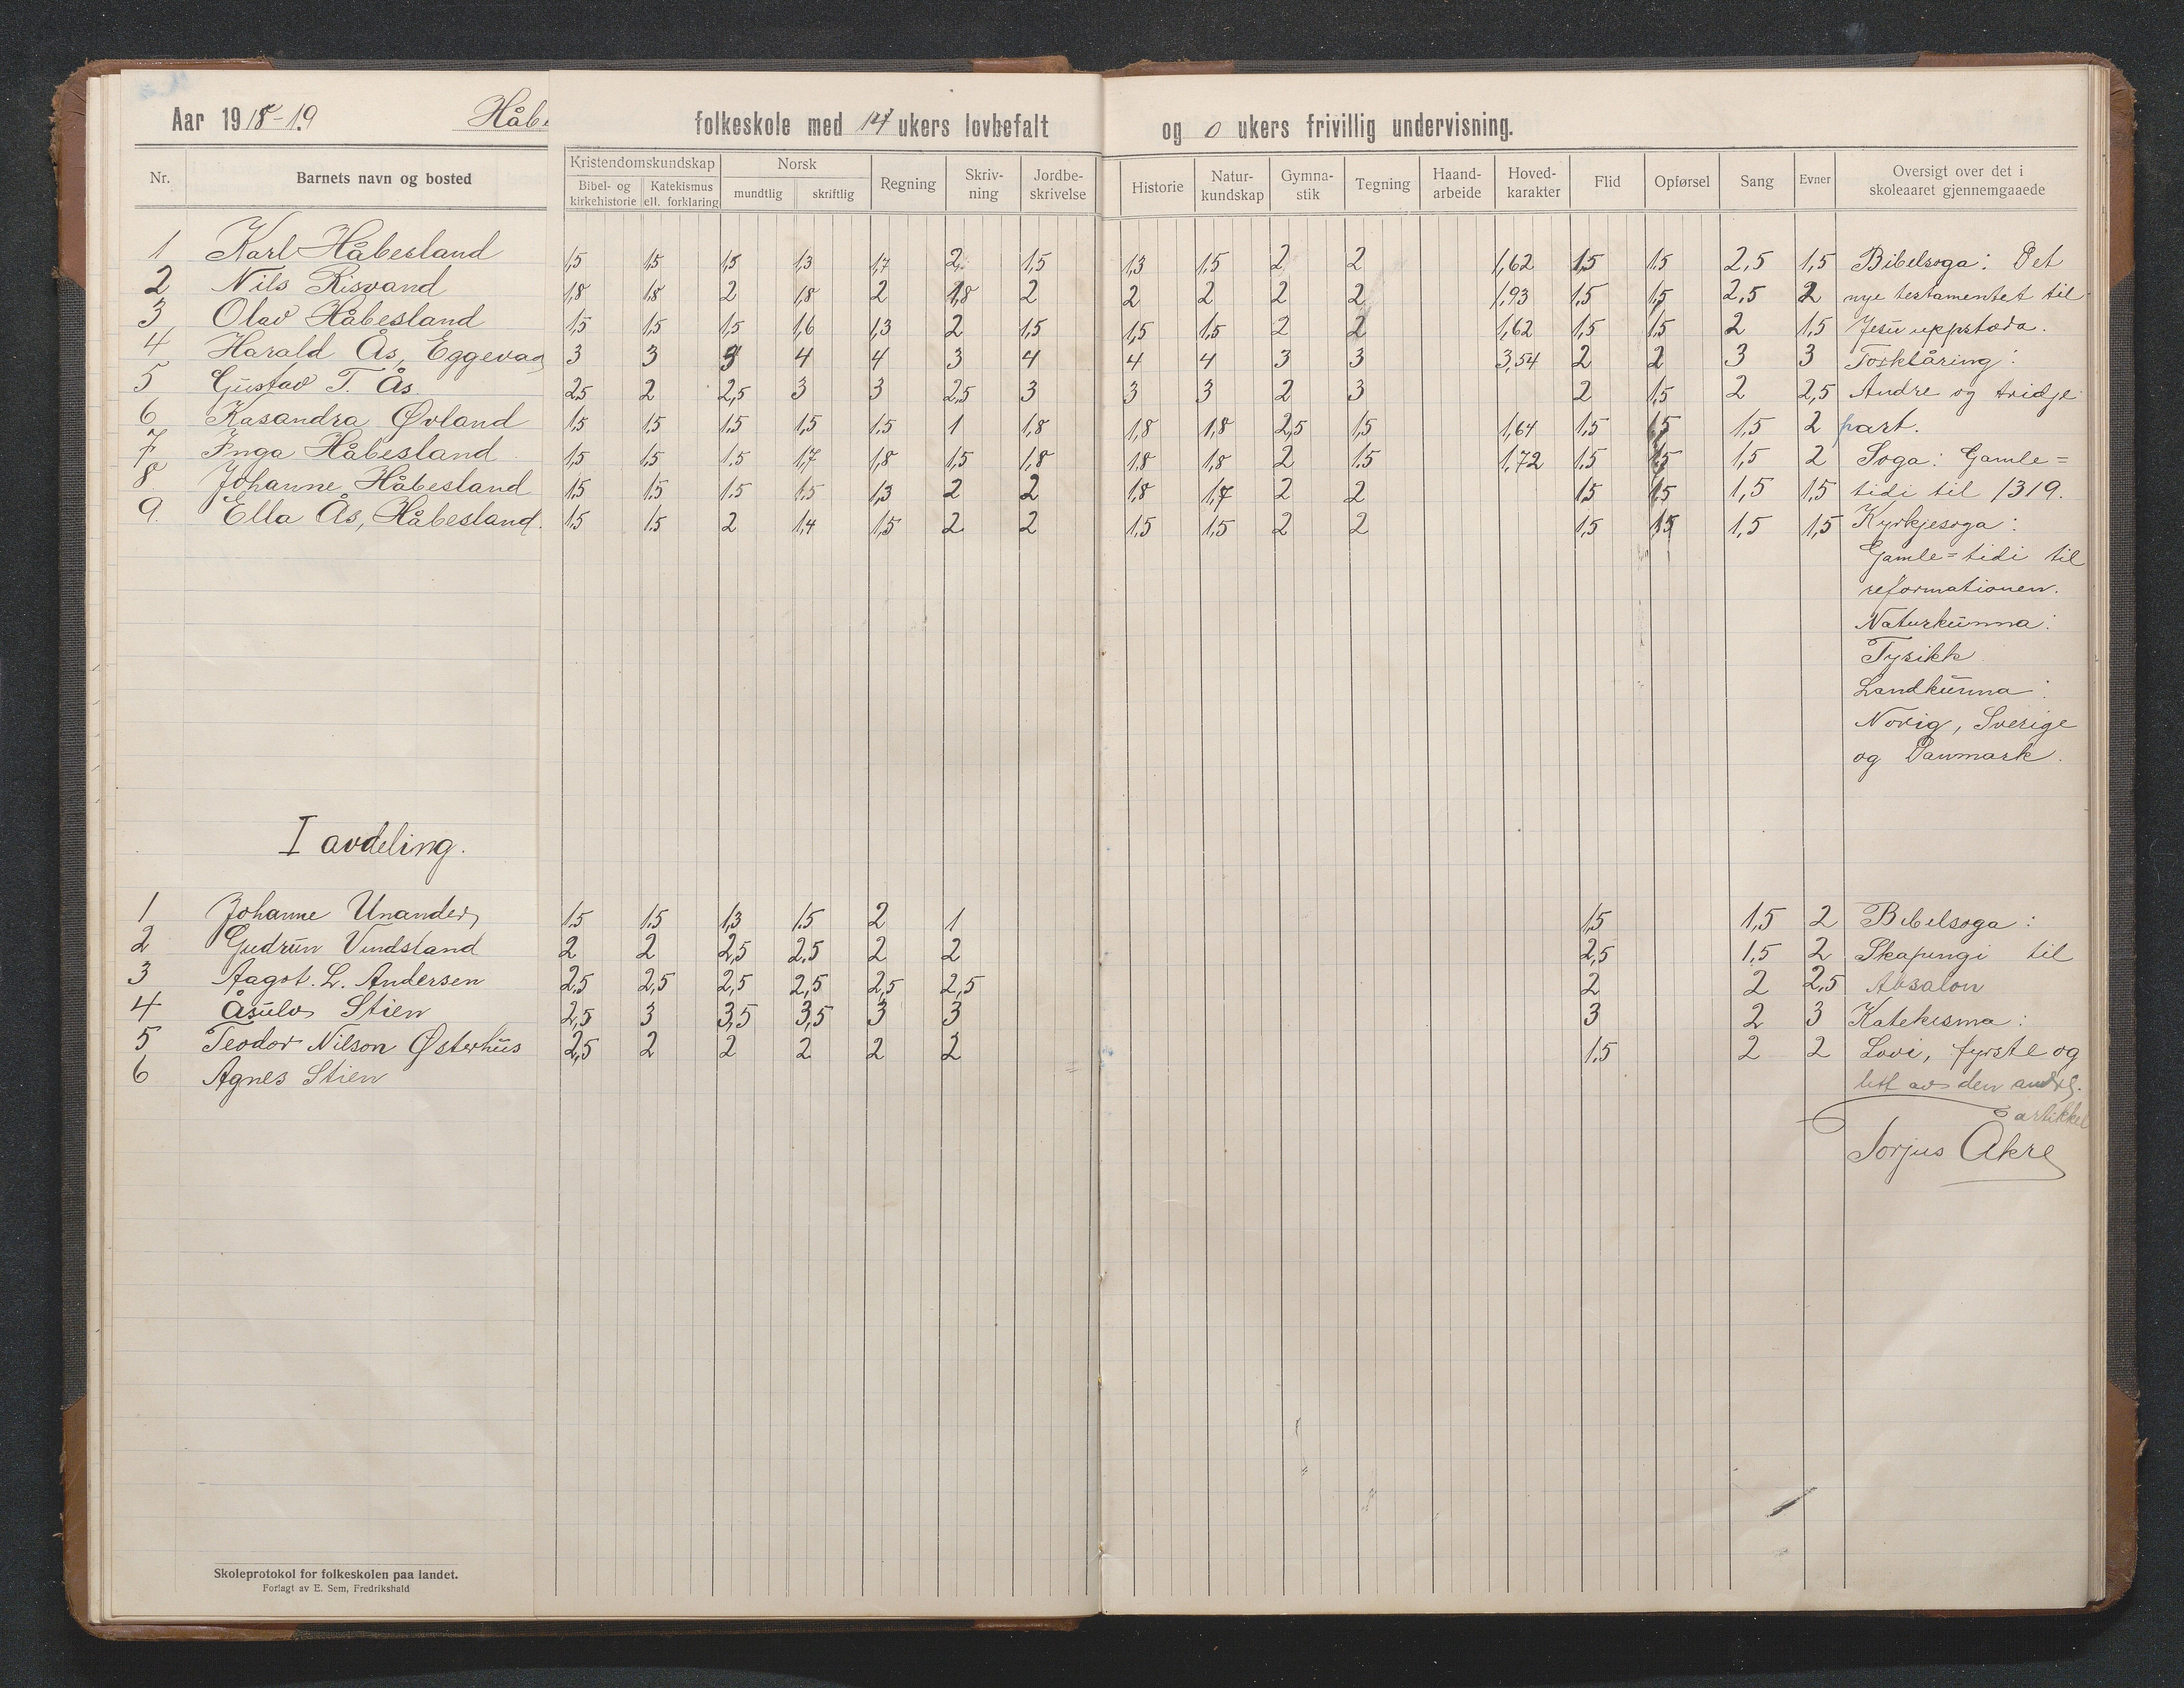 Aar 1918-19 Håbe folkeskole med 14 ukers lovbefalt og 0 ukers frivillig undervisning.
Nr. Barnets navn og bosted Kristendomskundskap Bibel- og kirkehistorie Katekismus ell. forklaring Norsk mundtlig skriftlig Regning Skriv-ning Jordbe-skrivelse Historie Natur-kundskap Gymna-stik Tegning Haand-arbeide Hoved-karakter Flid Opførsel Sang Evner Oversigt over det i skoleaaret gjennemgaaede
1 Karl Håbesland 1,5 1,5 1,5 1,3 1,7 2 1,5 1,3 1,5 2 2 1,62 1,5 1,5 2,5 1,5 Bibelsoga: Det
2 Nils Risvand 1,8 1,8 2 1,8 2 1,8 2 2 2 2 2 1,93 1,5 1,5 2,5 2 nye testamentet til
3 Olav Håbesland 1,5 1,5 1,5 1,6 1,3 2 1,5 1,5 1,5 2 2 1,62 1,5 1,5 2 1,5 Jesu uppstoda.
4 Harald Ås, Eggevag 3 3 3 4 4 3 4 4 4 3 3 3,54 2 2 3 3 Forklåring:
5 Gustav T. Ås 2,5 2 2,5 3 3 2,5 3 3 3 2 3 2 1,5 2 2,5 Andre og tridje
6 Kasandra Øvland 1,5 1,5 1,5 1,5 1,5 1 1,8 1,8 1,8 2,5 1,5 1,64 1,5 1,5 1,5 2 part.
7 Inga Håbesland 1,5 1,5 1,5 1,7 1,8 1,5 1,8 1,8 1,8 2 1,5 1,72 1,5 1,5 1,5 2 Soga: Gamle=
8. Johanne Håbesland 1,5 1,5 1,5 1,5 1,3 2 2 1,8 1,7 2 2 1,5 1,5 1,5 1,5 tidi til 1319.
9. Ella Ås, Håbesland. 1,5 1,5 2 1,4 1,5 2 2 1,5 1,5 2 2 1,5 1,5 1,5 1,5 Kyrkjesoga:
Gamle=tidi til
reformationen.
Naturkunna:
Fysikk
Landkunna:
Norig, Sverige
og Danmark.
I avdeling.
1 Johanne Unander 1,5 1,5 1,3 1,5 2 1 1,5 1,5 2 Bibelsoga:
2 Gudrun Vindsland 2 2 2,5 2,5 2 2 2,5 1,5 2 Skapungi til
3 Aagot. L. Andersen 2,5 2,5 2,5 2,5 2,5 2,5 2 2 2,5 Absalon
4 Åsulv Stien 2,5 3 3,5 3,5 3 3 3 2 3 Katekisma:
5 Teodor Nilson Østerhus 2,5 2 2 2 2 2 1,5 2 2 Lovi, fyrste og
6 Agnes Stien litt av den andre
artikkel
Torjus Åkre
Skoleprotokol for folkeskolen paa landet.
Forlagt av E. Sem, Fredrikshald